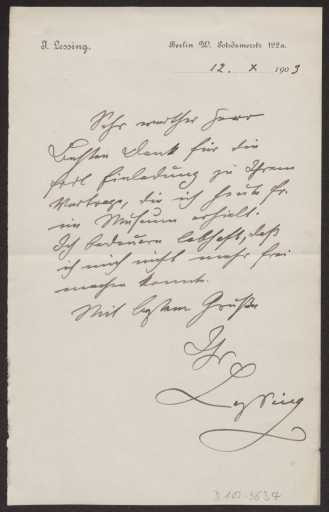 J. Lessing.
Berlin W. Potsdamerstr. 122a.
12. X 1903
Sehr werther Herr
Besten Dank für die
frdl Einladung zu Ihrem
Vortrage, die ich heute fr.
im Museum erhielt.
Ich bedauere lebhaft, daß
ich mich nicht mehr frei
machen konnte.
Mit bestem Gruße
Ihr
Lessing